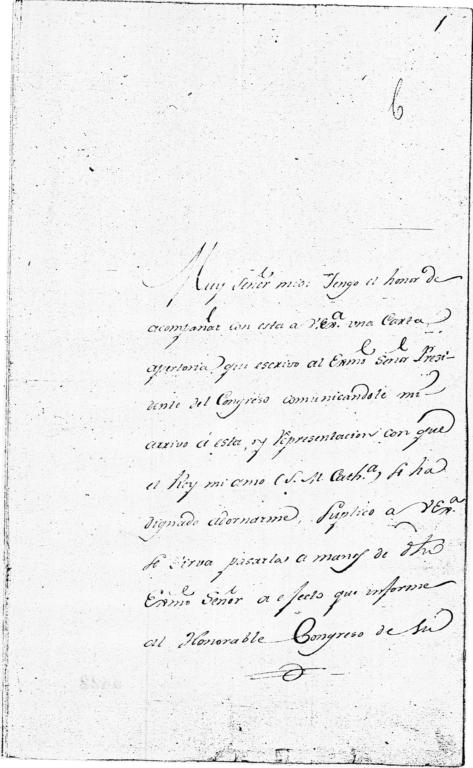 1
6
Muy Señor mio: Tengo el honor de
acompañar con esta a V.Exª una Carta
apertoria, que escrivo al Exmo Señor Presi-
dente del Congreso comunicandole mi
arrivo á esta, y Representacion con que
el Rey mi amo (S. M. Cathª) se ha
dignado adornarme, suplico a V.Exª
se sirva pasarla a manos de dho
Exmo Señor a efecto que informe
al Honorable Congreso de su